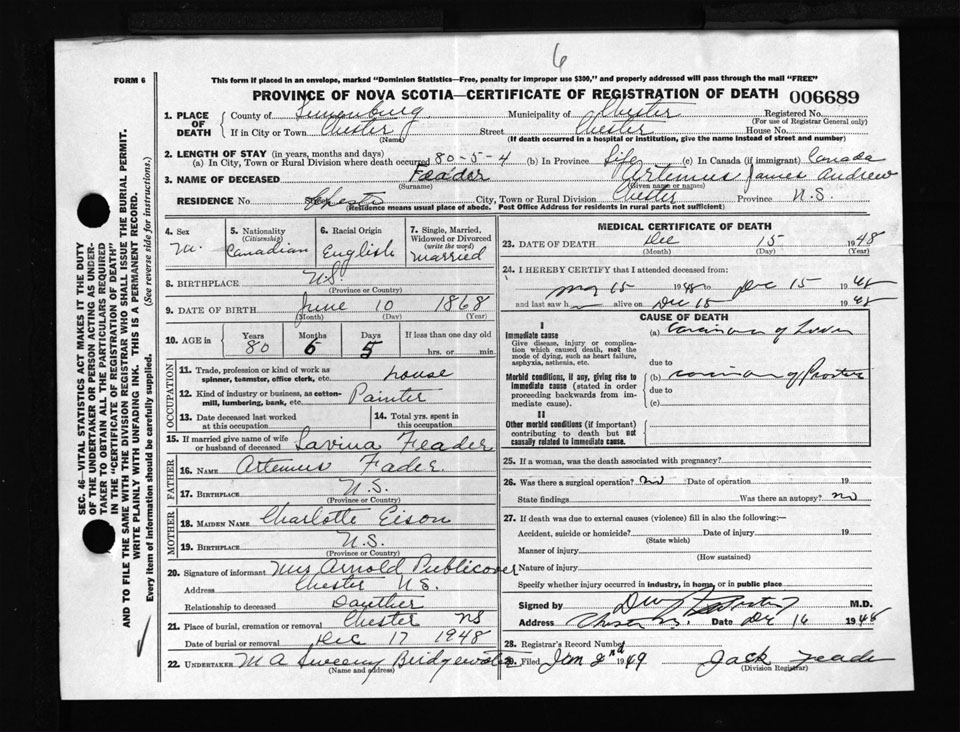 6
FORM 6
This form if placed in an envelope, marked "Dominion Statistics—Free, penalty for improper use $300," and properly addressed will pass through the mail "FREE"
PROVINCE OF NOVA SCOTIA—CERTIFICATE OF REGISTRATION OF DEATH 006689
1. PLACE OF DEATH
County of Lunenburg Municipality of Chester Registered No.
(For use of Registrar General only)
If in City or Town Chester Street Chester House No.
(Name) (If death occurred in a hospital or institution, give the name instead of street and number)
2. LENGTH OF STAY (in years, months and days)
(a) In City, Town or Rural Division where death occurred 80-5-4 (b) In Province Life (c) In Canada (if immigrant) Canada
3. NAME OF DECEASED Feader Artemus James Andrew
(Surname) (Given name or names)
RESIDENCE No. Street Chester City, Town or Rural Division Chester Province N.S.
(Residence means usual place of abode. Post Office Address for residents in rural parts not sufficient)
4. Sex M.
5. Nationality (Citizenship) Canadian
6. Racial Origin English
7. Single, Married, Widowed or Divorced (write the word) Married
8. BIRTHPLACE N.S
(Province or Country)
9. DATE OF BIRTH June 10 1868
(Month) (Day) (Year)
10. AGE in Years Months Days If less than one day old
80 6 5 hrs. or min.
OCCUPATION
11. Trade, profession or kind of work as spinner, teamster, office clerk, etc. house
12. Kind of industry or business, as cotton-mill, lumbering, bank, etc. Painter
13. Date deceased last worked at this occupation
14. Total yrs. spent in this occupation
15. If married give name of wife or husband of deceased Lavina Feader
FATHER
16. NAME Artemus Fader
17. BIRTHPLACE N.S.
(Province or Country)
MOTHER
18. MAIDEN NAME Charlotte Eison
19. BIRTHPLACE N.S.
(Province or Country)
20. Signature of informant Mrs Arnold Publicover
Address Chester N.S.
Relationship to deceased Dauther
21. Place of burial, cremation or removal Chester NS
Date of burial or removal Dec 17 1948
22. UNDERTAKER M A Sweeny Bridgewater
(Name and address)
MEDICAL CERTIFICATE OF DEATH
23. DATE OF DEATH Dec 15 1948
(Month) (Day) (Year)
24. I HEREBY CERTIFY that I attended deceased from:
15 1948 to Dec 15 1948
and last saw h alive on Dec 15 1948
CAUSE OF DEATH
I
Immediate cause (a) Carcinoma of Liver
Give disease, injury or complication which caused death, not the mode of dying, such as heart failure, asphyxia, asthenia, etc.
due to
Morbid conditions, if any, giving rise to immediate cause (stated in order proceeding backwards from immediate cause).
(b) carcinoma of Prostate
due to
(c)
II
Other morbid conditions (if important) contributing to death but not causally related to immediate cause.
25. If a woman, was the death associated with pregnancy?
26. Was there a surgical operation? no Date of operation 19
State findings Was there an autopsy? no
27. If death was due to external causes (violence) fill in also the following:—
Accident, suicide or homicide? Date of injury 19
(State which)
Manner of injury
(How sustained)
Nature of injury
Specify whether injury occurred in industry, in home, or in public place
Signed by M.D.
Address Chester N.S. Date Dec 16 1948
28. Registrar's Record Number
29. Filed Jan 2nd 1949 Jack Feader
(Division Registrar)
SEC. 46—VITAL STATISTICS ACT MAKES IT THE DUTY
OF THE UNDERTAKER OR PERSON ACTING AS UNDERTAKER TO OBTAIN ALL THE PARTICULARS REQUIRED
IN THE "CERTIFICATE OF REGISTRATION OF DEATH"
AND TO FILE THE SAME WITH THE DIVISION REGISTRAR WHO SHALL ISSUE THE BURIAL PERMIT.
WRITE PLAINLY WITH UNFADING INK. THIS IS A PERMANENT RECORD.
Every item of information should be carefully supplied. (See reverse side for instructions.)